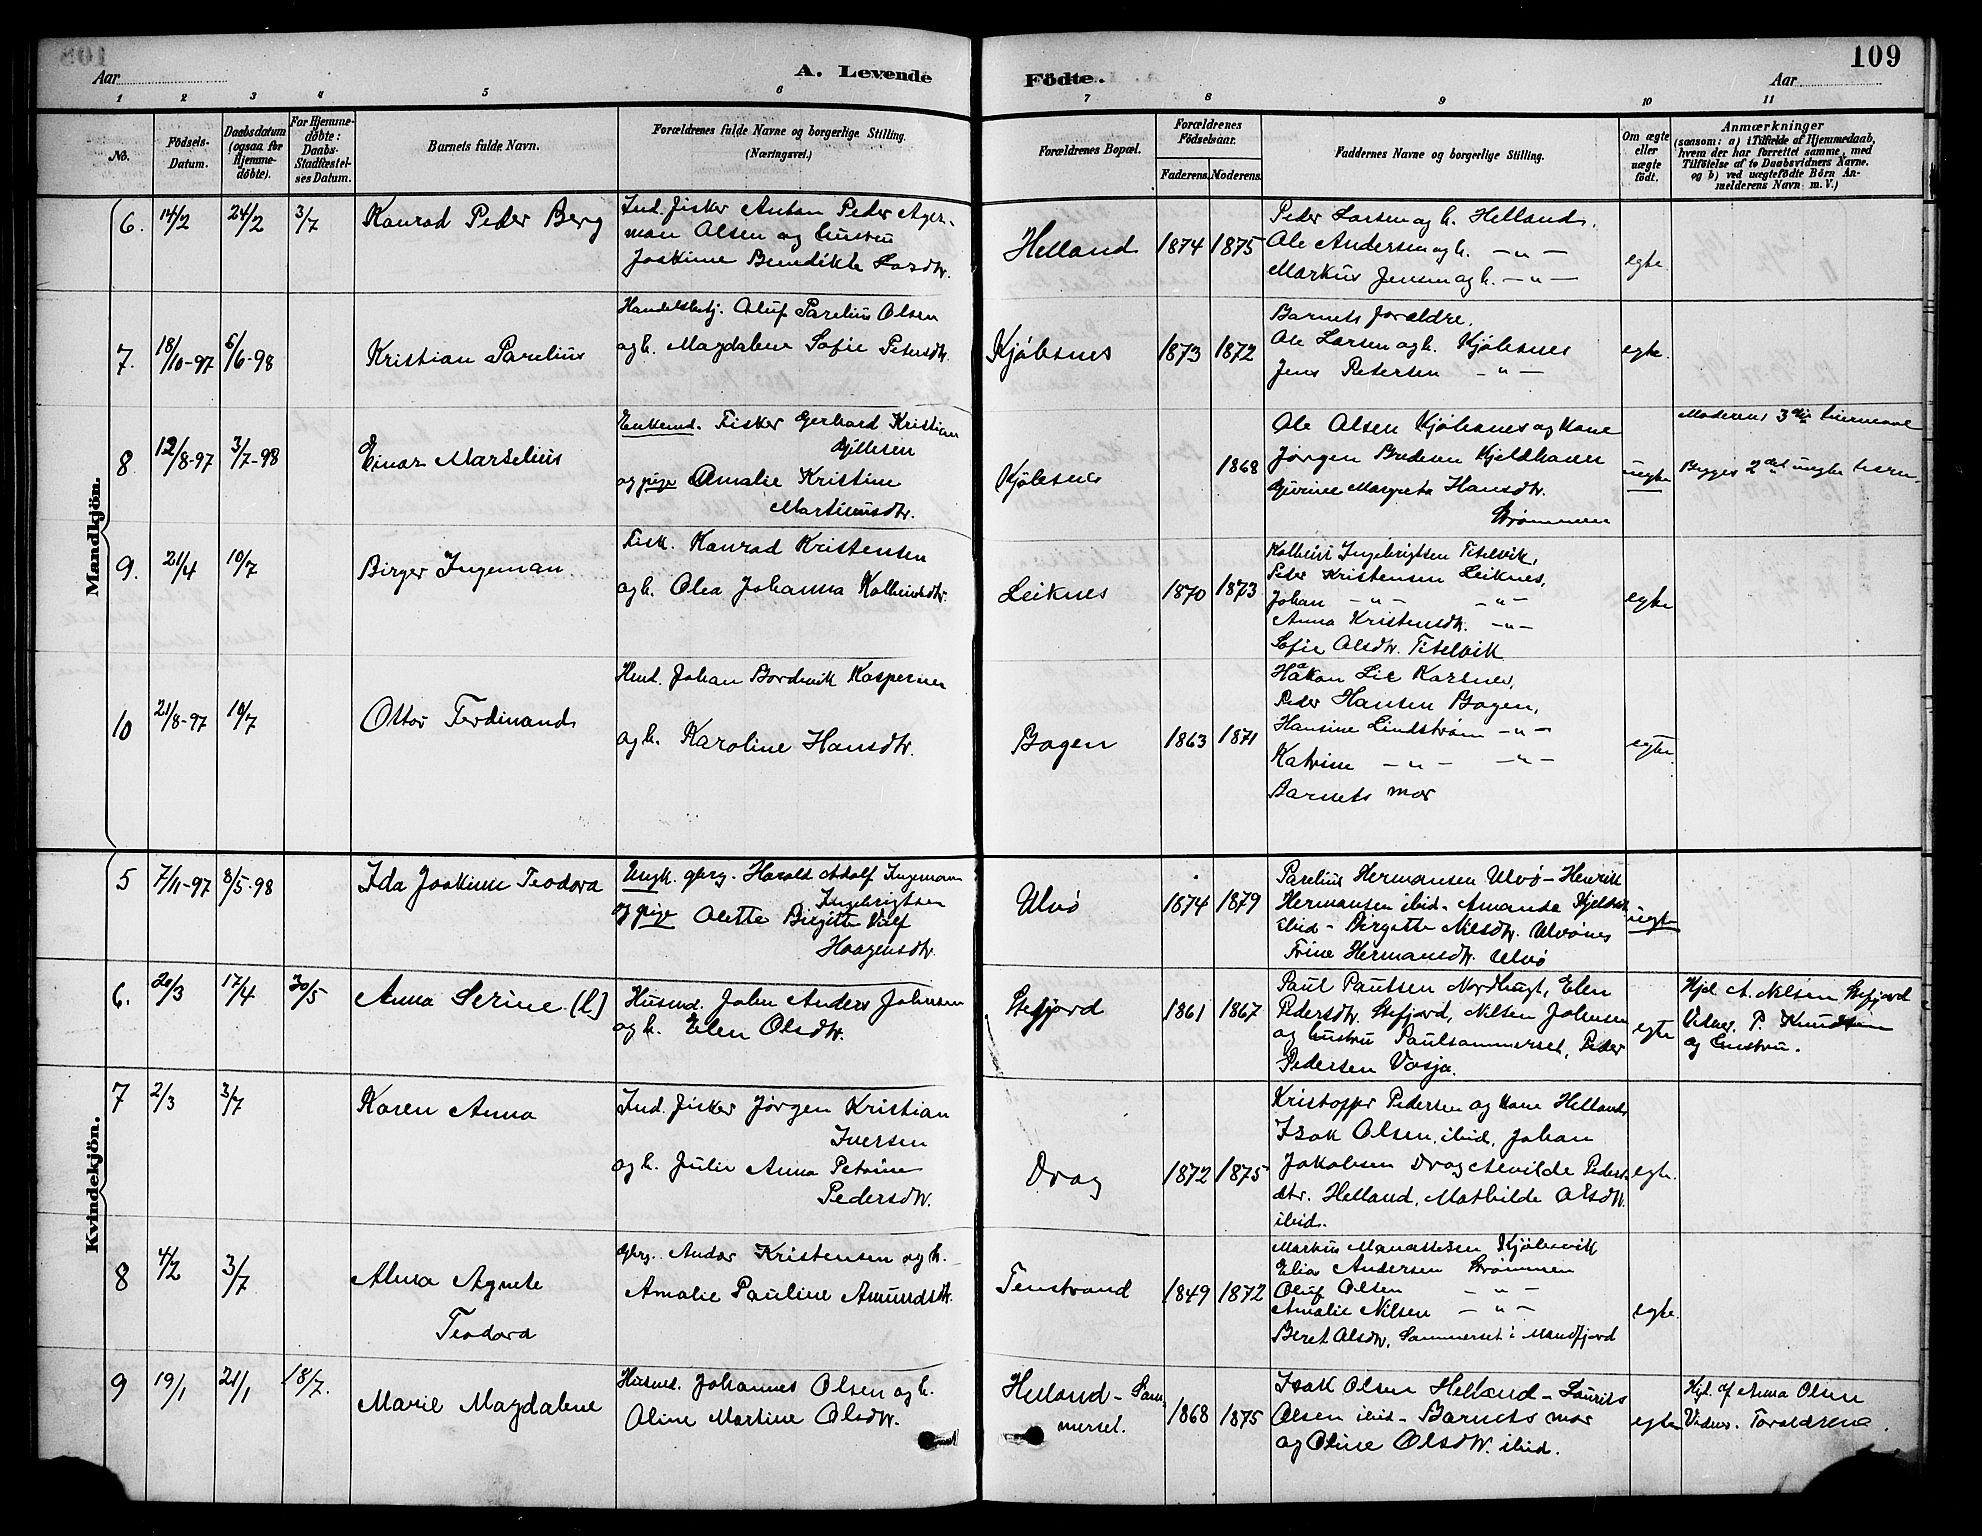 109
Aar
A. Levende
Födte.
Aar
1 2 3 4 5 6 7 8 9 10 11
No.
Födsels-Datum.
Daabsdatum (ogsaa for Hjemme-döbte).
For Hjemme-döbte: Daabs-Stadfæstel-ses Datum.
Barnets fulde Navn.
Forældrenes fulde Navne og borgerlige Stilling.
(Næringsvei.)
Forældrenes Bopæl.
Forældrenes Födselsaar.
Faderens. Moderens.
Faddernes Navne og borgerlige Stilling.
Om ægte eller uægte födt.
Anmærkninger
(saasom: a) i Tilfælde af Hjemmedaab, hvem der har forrettet samme, med Tilföielse af to Daabsvidners Navne. og b) ved uægtefödte Börn An-melderens Navn m. V.)
Mandkjön.
6. 14/2 24/2 3/7 Konrad Peder Berg
Ind. Fisker Anton Peder Ager-
man Olsen og hustru
Joakime Bendikte Larsdtr.
Helland 1874 1875
Peder Larsen og h. Helland.
Ole Andersen og h. — " —
Markus Jensen og h. — " —
egte
7. 18/10-97 5/6-98 Kristian Parelius
Handelsbetj. Oluf Parelius Olsen
og h. Magdalene Sofie Petersdtr.
Kjöbsnes 1873 1872
Barnets forældre.
Ole Larsen og h. Kjöbsnes
Jens Petersen — " —
egte.
8. 12/8-97 3/7-98 Einar Marselius
Enkemd. Fisker Gerhard Kristian
Gjillesen
og pige Amalie Kristine
Martinusdtr.
Kjöbsnes 1868
Ole Olsen Kjöbsnes og Kone
Jörgen Kjeldhaven
Margreta Hansdtr.
Strömmen
uegte
Moderens 3die
Begges 2det uegte barn.
9. 21/4 10/7 Birger Ingeman
Fisk. Konrad Kristensen
og h. Olea Johanna
Leiknes 1870 1873
Ingebrigtsen Titelvik,
Peder Kristensen Leiknes,
Johan — " — — " —
Anna Kristensdtr. — " —
Sofie Olsdtr. Titelvik
egte
10 21/8-97 10/7 Ottar Ferdinand
Johan Bordevik Kaspersen
og h. Karoline Hansdtr.
Bogen 1863 1871
Håkon Lie Korsnes,
Peder Hansen Bogen,
Hansine Lindström — " —
Katrine — " — — " —
Barnets mor
egte
Kvindekjön.
5 7/11-97 8/5-98 Ida Joakime Teodora
Ungk. gbrg. Harald Adolf Ingeman
Ingebrigtsen
og pige Olette Birgitte
Haagensdtr.
Ulvö 1874 1879
Parelius Hermansen Ulvö – Henrik
Hermansen ibid – Amanda
ibid – Birgitte Nilsdtr. Ulvönes
Trine Hermansdtr. Ulvö
uegte
6. 20/3 17/4 30/5 Anna Serine. (l)
Husmd. John Anders Johnsen
og h. Elen Olsdtr.
Stefjord 1861 1867
Paul Paulsen Nordbugt, Elen
Pedersdtr. Stefjord, Nilsen Johnsen
og hustru Paulsommerset, Peder
Pedersen Vasja.
egte
Hjd. A. Nilsen Stefjord
Vidner. P. Knudsen
og hustru.
7 2/3 3/7 Karen Anna
Ind. Fisker Jörgen Kristian
Iversen
og h. Julie Anna Petrine
Pedersdtr.
Drag 1872 1875
Kristoffer Pedersen og Kone Helland
Isak Olsen, ibid, Johan
Jakobsen Drag Alvilde Peders-
dtr. Helland, Mathilde Olsdtr.
ibid.
egte.
8 4/2 3/7 Alma Agnete
Teodora
Gbrg. Andor Kristensen og h.
Amalie Pauline Amundsdtr.
Tenstrand 1849 1872
Markus Manassesen Kjöbsvik
Elias Andersen Strömmen
Oluf Olsen — " —
Amalie Nilsen — " —
Beret Olsdtr. Sommerset i Manfjord
egte.
9 19/1 21/1 18/7. Marie Magdalene
Husmd. Johannes Olsen og h.
Oline Martine Olsdtr.
Helland – Som-
merset. 1868 1875
Isak Olsen Helland – Laurits
Olsen ibid – Barnets mor
og Oline Olsdtr. ibid.
egte
Hjd. af Anna Olsen
Vidner. Toraldsena